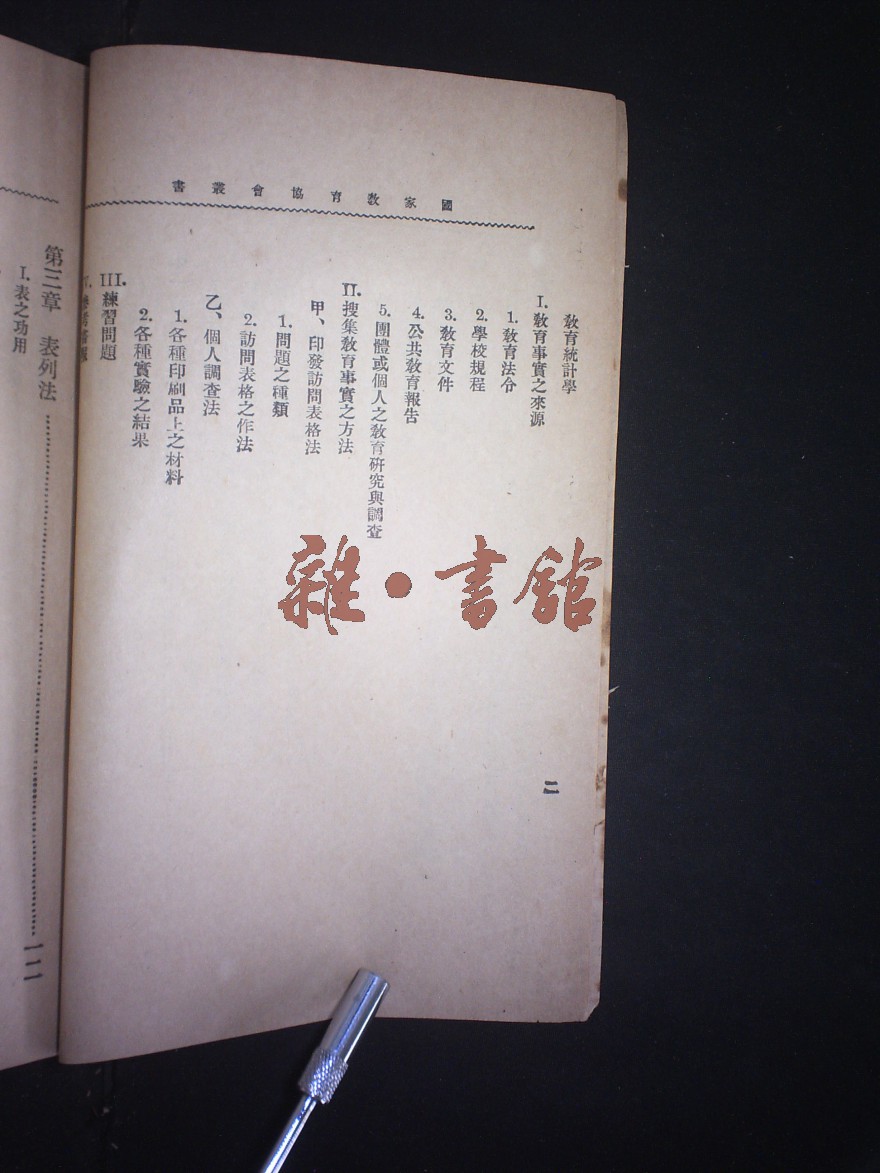 國家教育協會叢書
教育統計學
I. 教育事實之來源
1. 教育法令
2. 學校規程
3. 教育文件
4. 公共教育報告
5. 團體或個人之教育研究與調查
II. 搜集教育事實之方法
甲、印發訪問表格法
1. 問題之種類
2. 訪問表格之作法
乙、個人調查法
1. 各種印刷品上之材料
2. 各種實驗之結果
III. 練習問題
二
第三章 表列法……一二
I. 表之功用
雜·書館